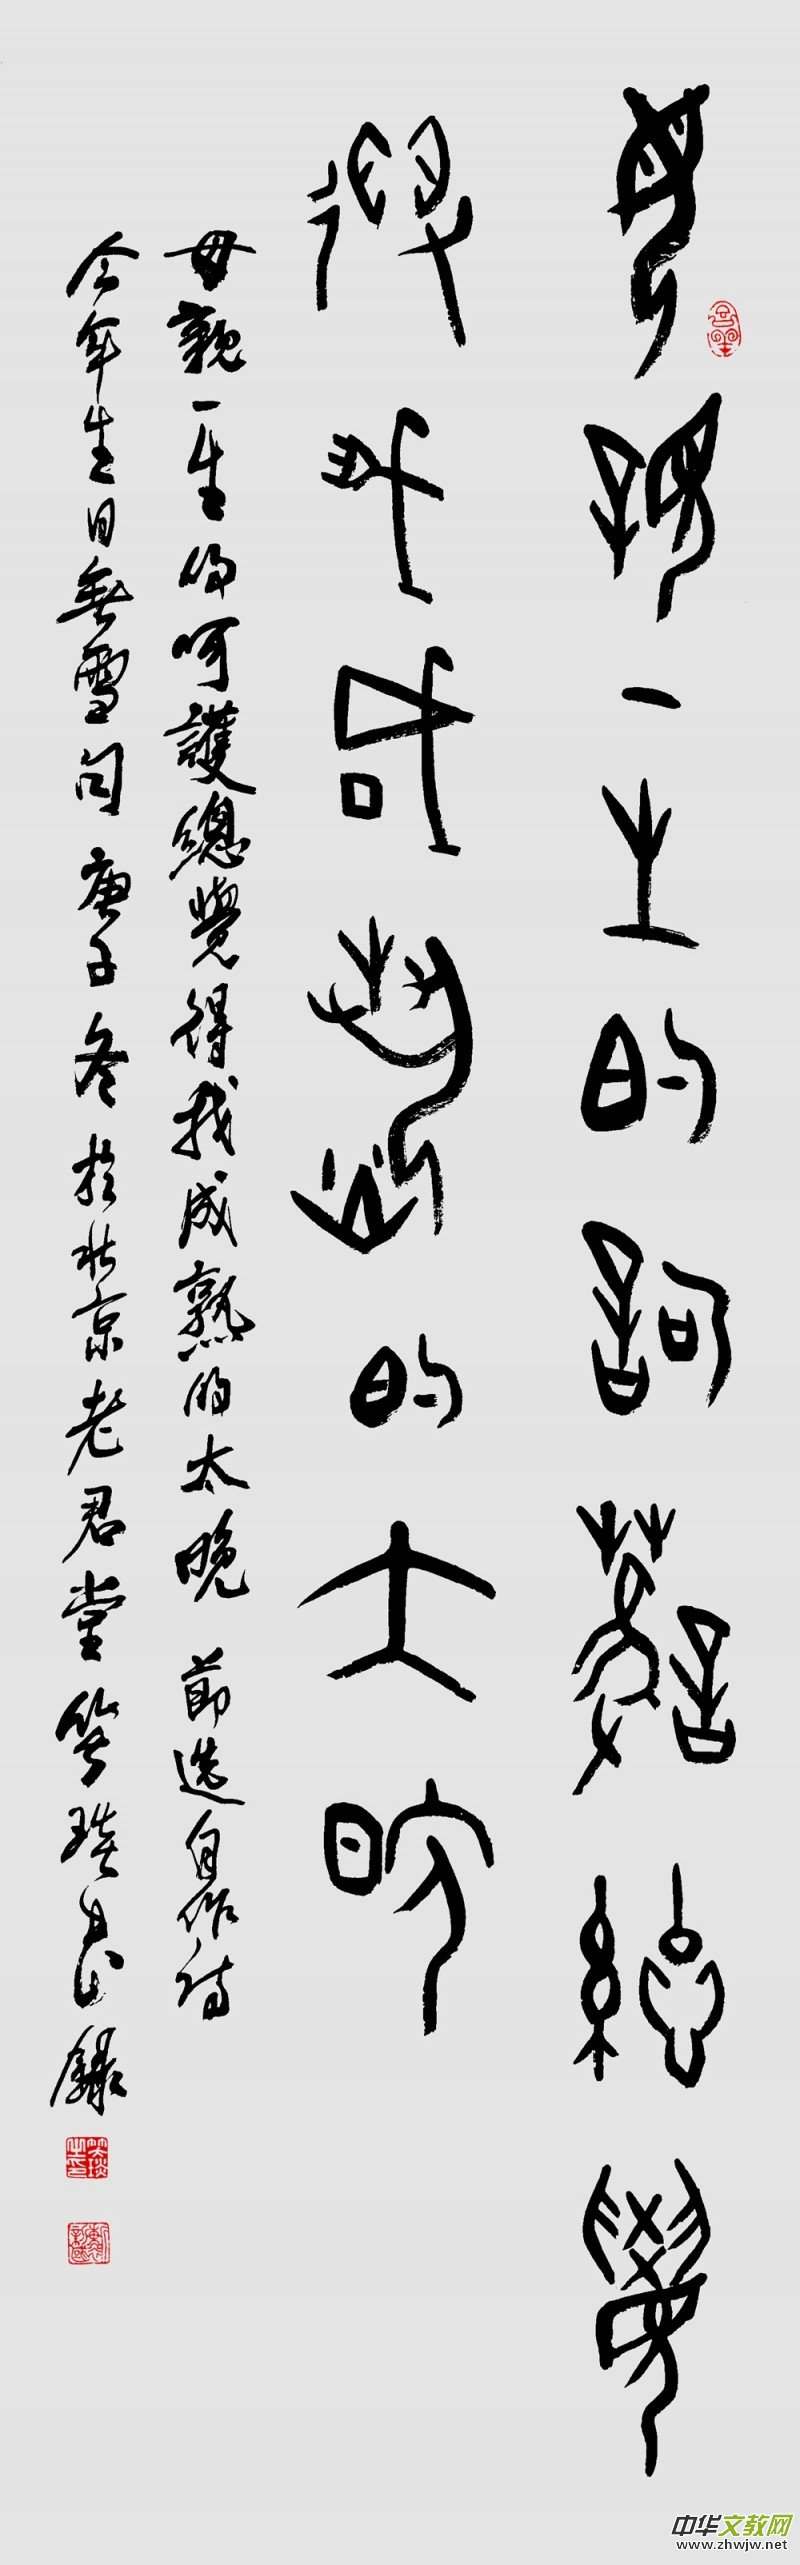 母親一生的訶護總覺
得我成熟的太晚
母親一生的呵護總覺得我成熟的太晚 節選自作詩
今年生日無雪句 庚子冬於北京老君堂笑琰書錄
中华文教网
www.zhwjw.net